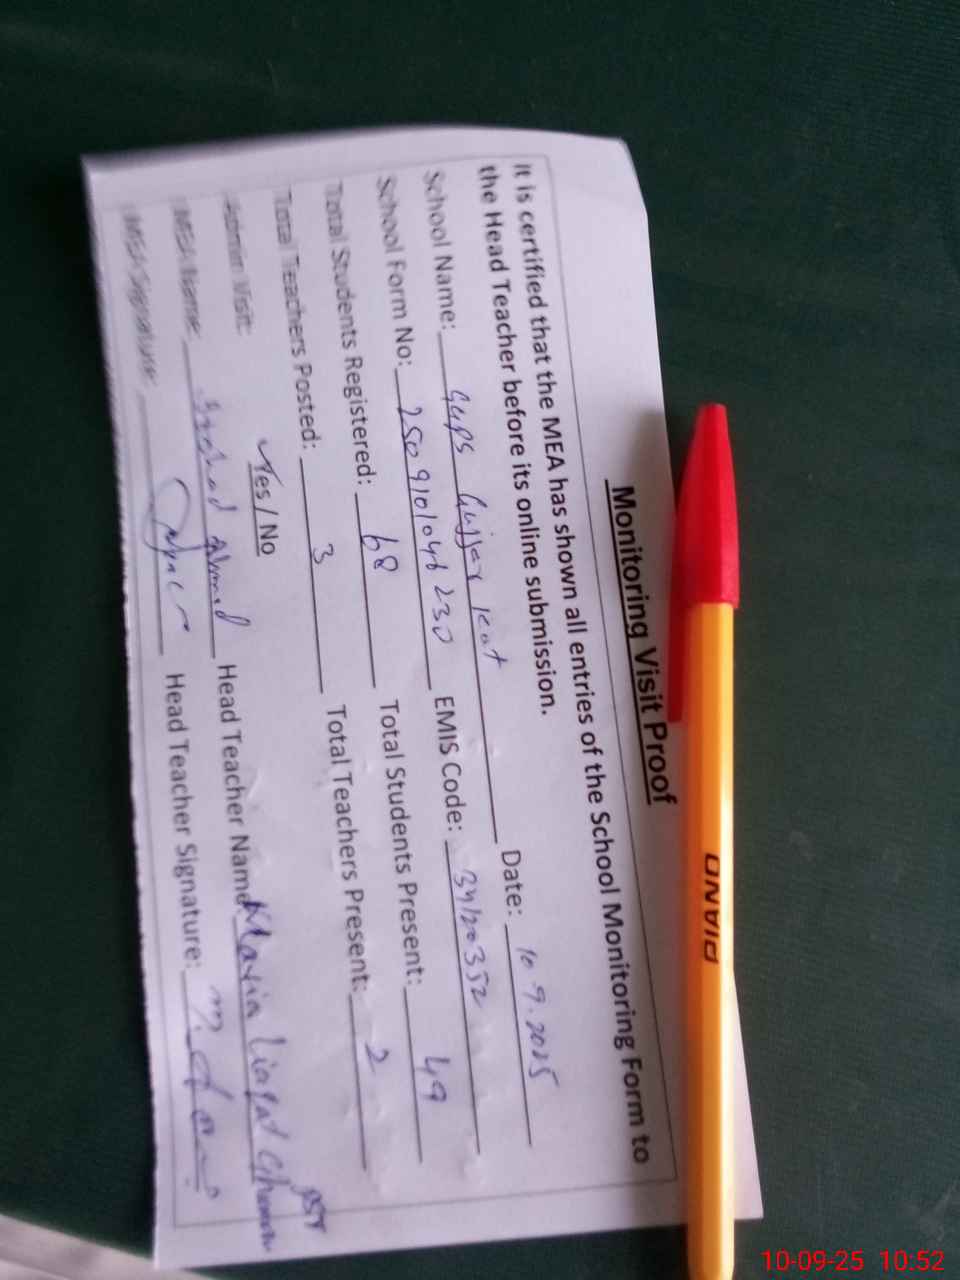 Monitoring Visit Proof
It is certified that the MEA has shown all entries of the School Monitoring Form to
the Head Teacher before its online submission.
School Name: GGPS Gujjar Kot Date: 10.9.2025
School Form No: 2509101046230 EMIS Code: 34120352
Total Students Registered: 68 Total Students Present: 49
Total Teachers Posted: 3 Total Teachers Present: 2
Admin Visit: Yes / No
MEA Name: Ahmed Head Teacher Name: Maria Liaqat PST
MEA Signature: Head Teacher Signature:
PIANO
10-09-25 10:52